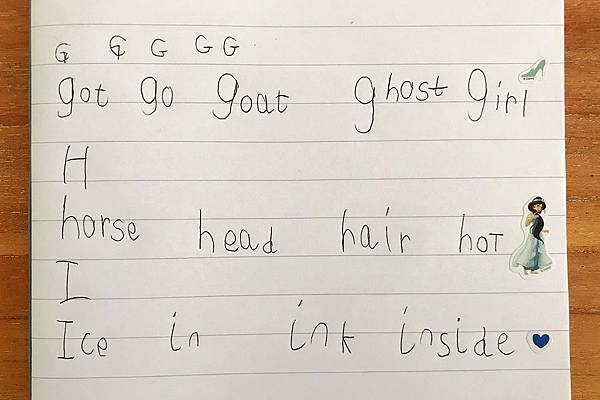 G G G G G
got go goat ghost girl
H
horse head hair hoT
I
Ice in ink inside